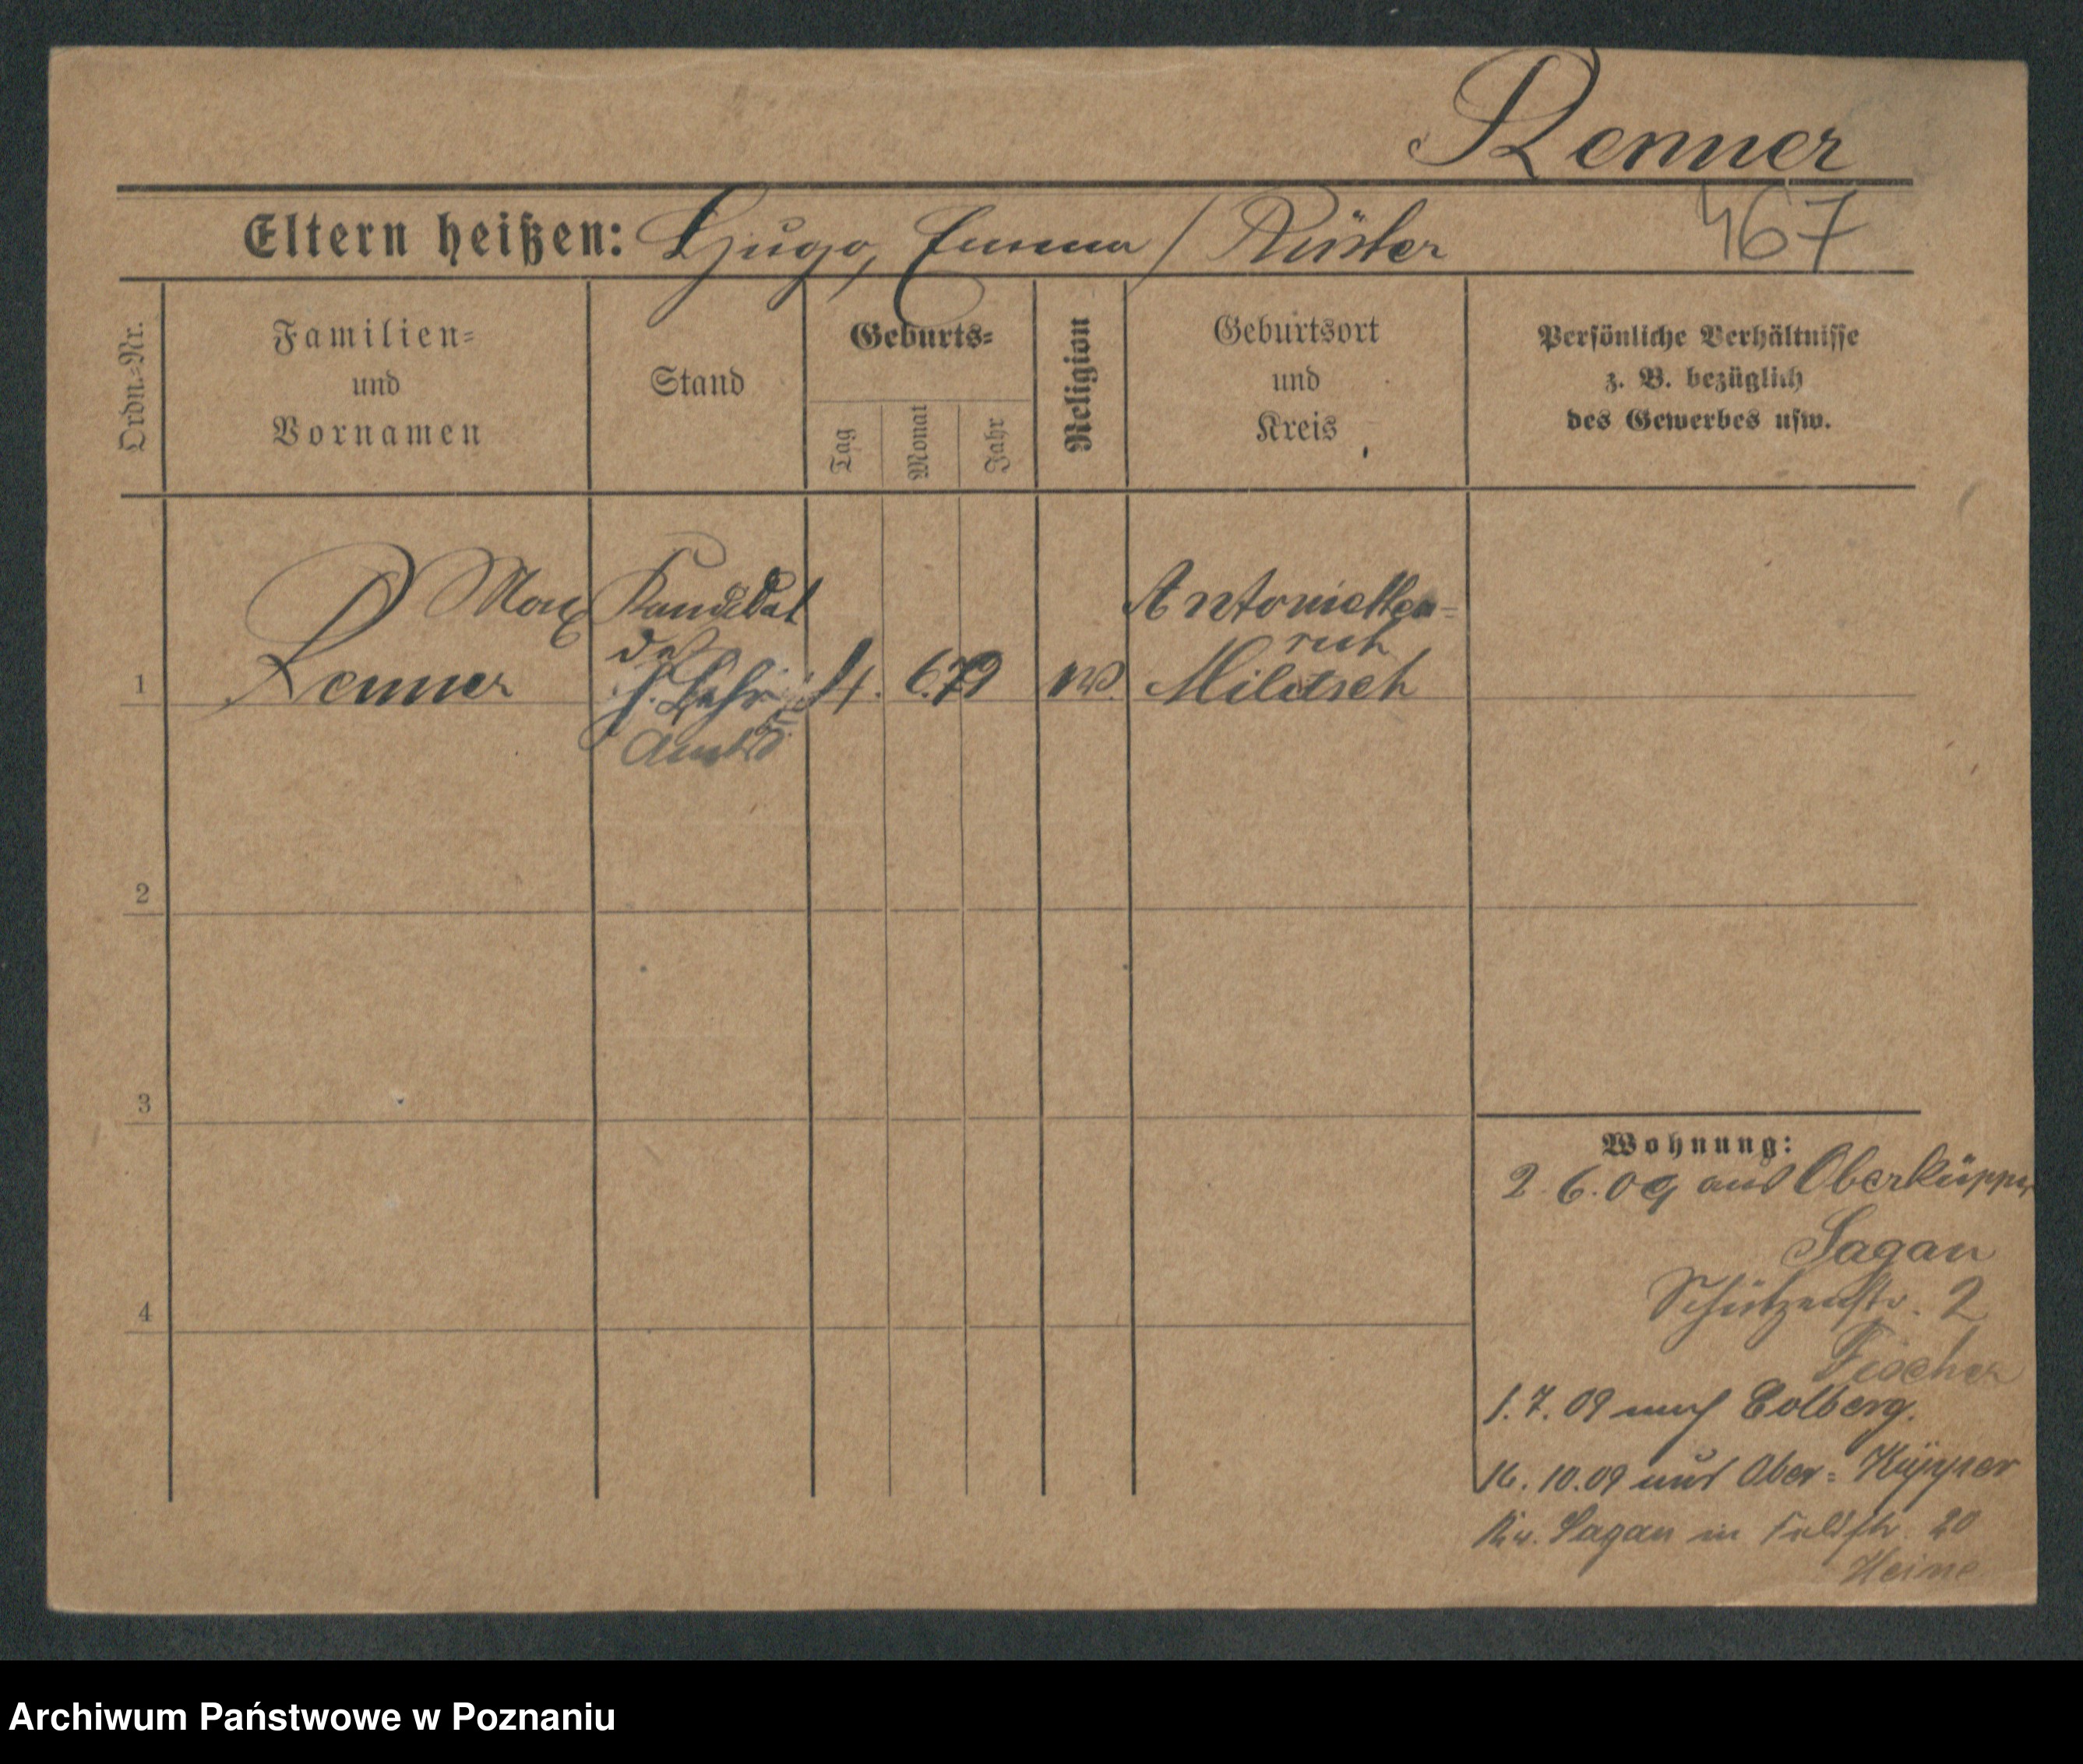 Renner
467
Eltern heißen: Hugo, Emma / Rüster
Ordn.=Nr.
Familien=
und
Vornamen
Stand
Geburts=
Tag
Monat
Jahr
Religion
Geburtsort
und
Kreis
Persönliche Verhältnisse
z. B. bezüglich
des Gewerbes usw.
Max
Renner
Kandidat
des
h. Lehr=
Amts
1
14. 6. 79
Antonietten=
ruh
Militsch
2
3
4
Wohnung:
2 6. 09 aus Oberküpper
Sagan
Schützenstr. 2
Fischer
1. 7. 09 nach Colberg.
16. 10. 09 aus Ober= Küpper
Kr. Sagan in Feldstr. 20
Heine
Archiwum Państwowe w Poznaniu